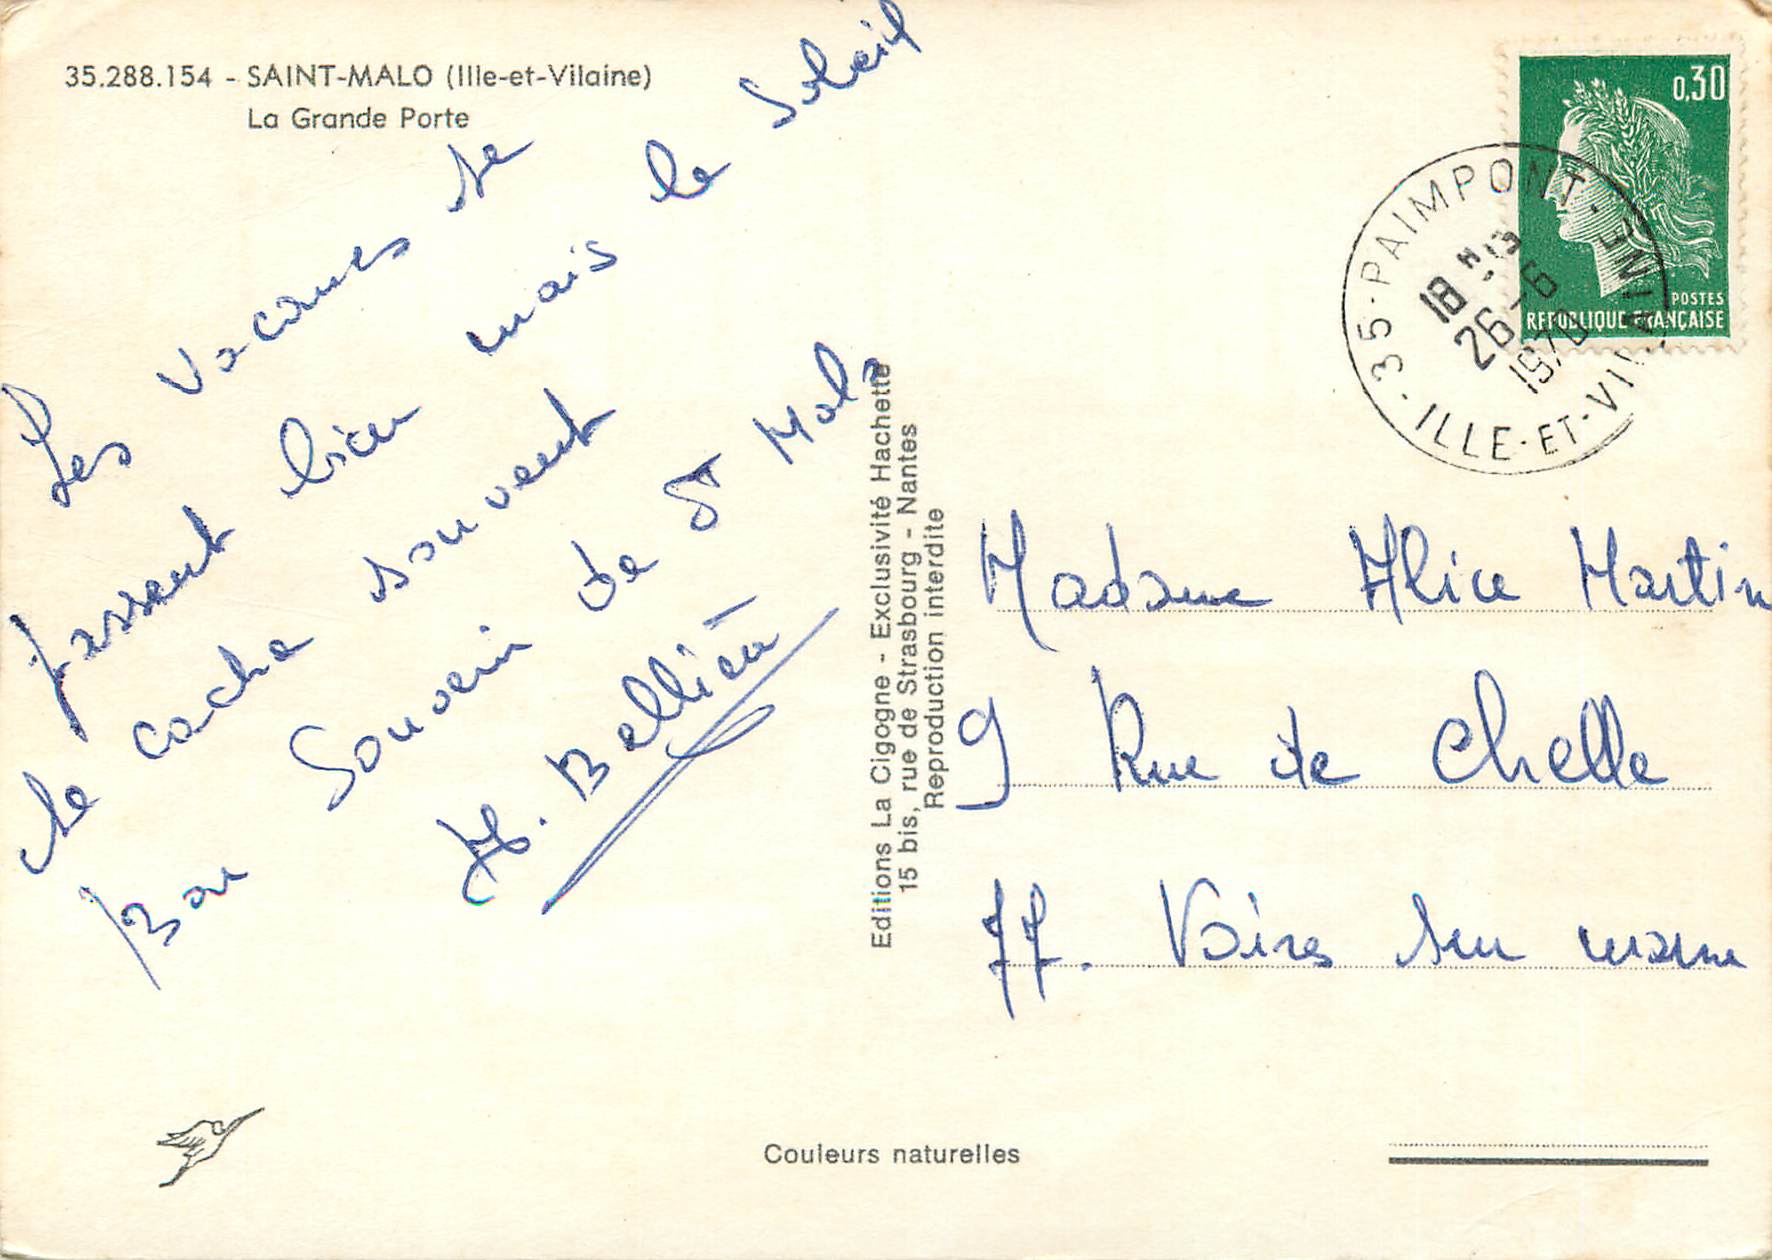 35.288.154 - SAINT-MALO (Ille-et-Vilaine)
La Grande Porte
Les vacances se
passent bien mais le Soleil
se cache souvent
Bon Souvenir de St Malo
Editions La Cigogne - Exclusivité Hachette
15 bis, rue de Strasbourg - Nantes
Reproduction interdite
0,30
POSTES
REPUBLIQUE FRANÇAISE
35-PAIMPONT-
ILLE-ET-VILAINE
18 H
26-6
1970
Madame Alice Martin
9 Rue de Chelle
77. Vaires sur marne
Couleurs naturelles